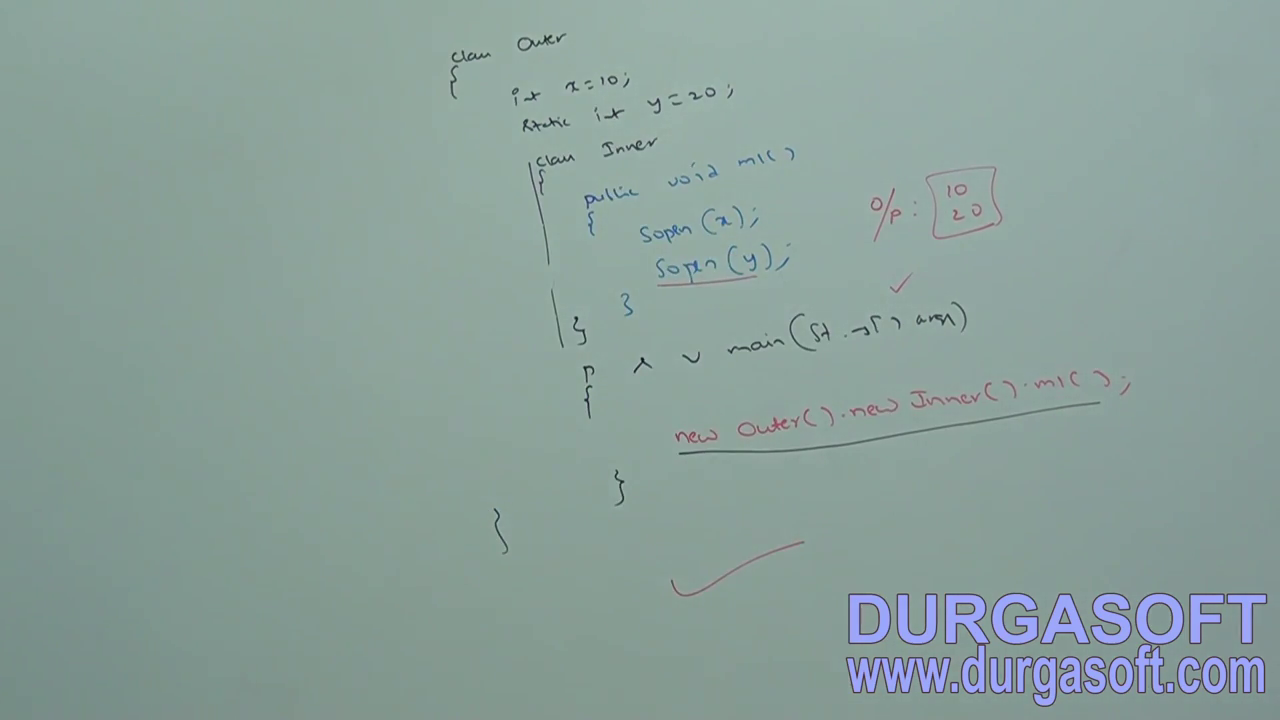 class Outer
{
int x=10;
static int y=20;
class Inner
{
public void m1()
{
Sopln(x);
Sopln(y);
}
}
O/P: 10
20
p s v main(St..g[] args)
{
new Outer().new Inner().m1();
}
}
DURGASOFT
www.durgasoft.com